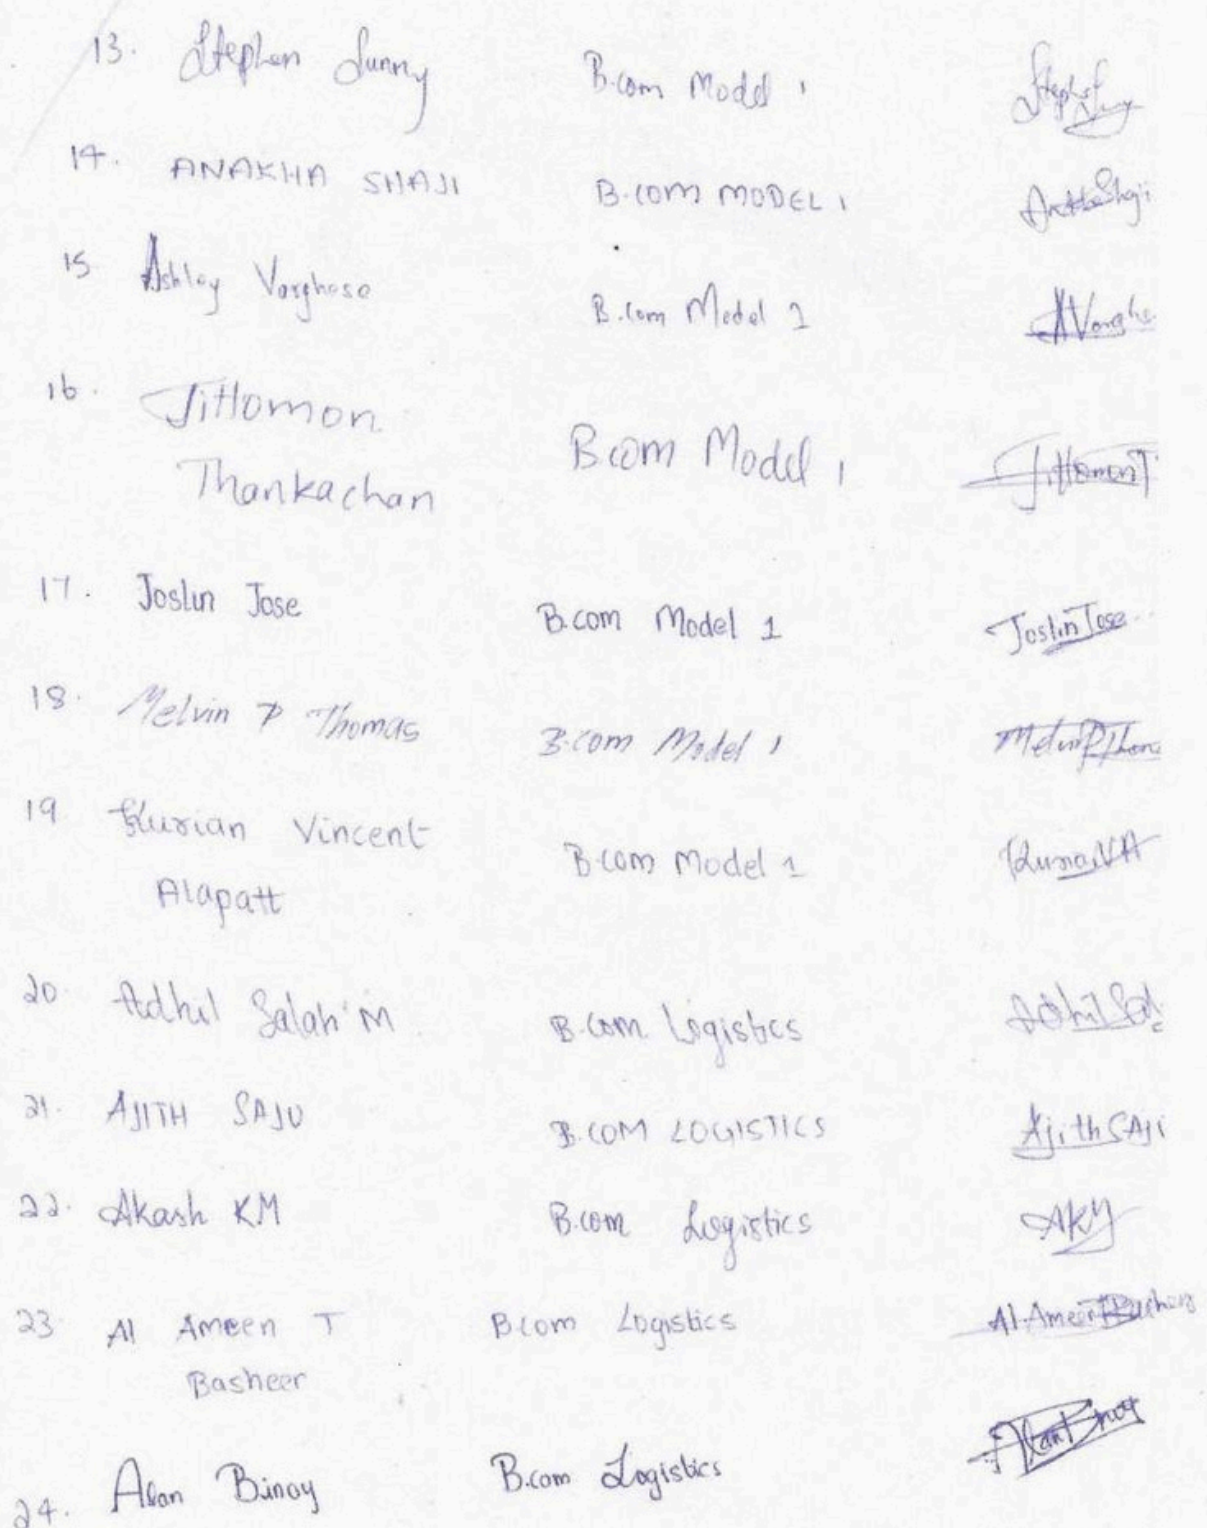 13. Stephen Sunny B.com Model 1 Stephen Sunny
14. ANAKHA SHAJI B.COM MODEL 1 Shaji
15 Ashley Varghese B.com Model 1 AVarghe
16. Jittomon B.com Model 1 Jittomon T
Thankachan
17. Joslin Jose B.com Model 1 Joslin Jose
18. Melvin P Thomas B.com Model 1 Melvin P Thom
19 Kurian Vincent B.com Model 1
Alapatt
20. Adhil Salah M B.com Logistics Adhil Sal
21. AJITH SAJU B.COM LOGISTICS Ajith SAJI
22. Akash KM B.com Logistics
23 Al Ameen T B.com Logistics Al-Ameen T Basheer
Basheer
24. Alan Binoy B.com Logistics Alan Binoy